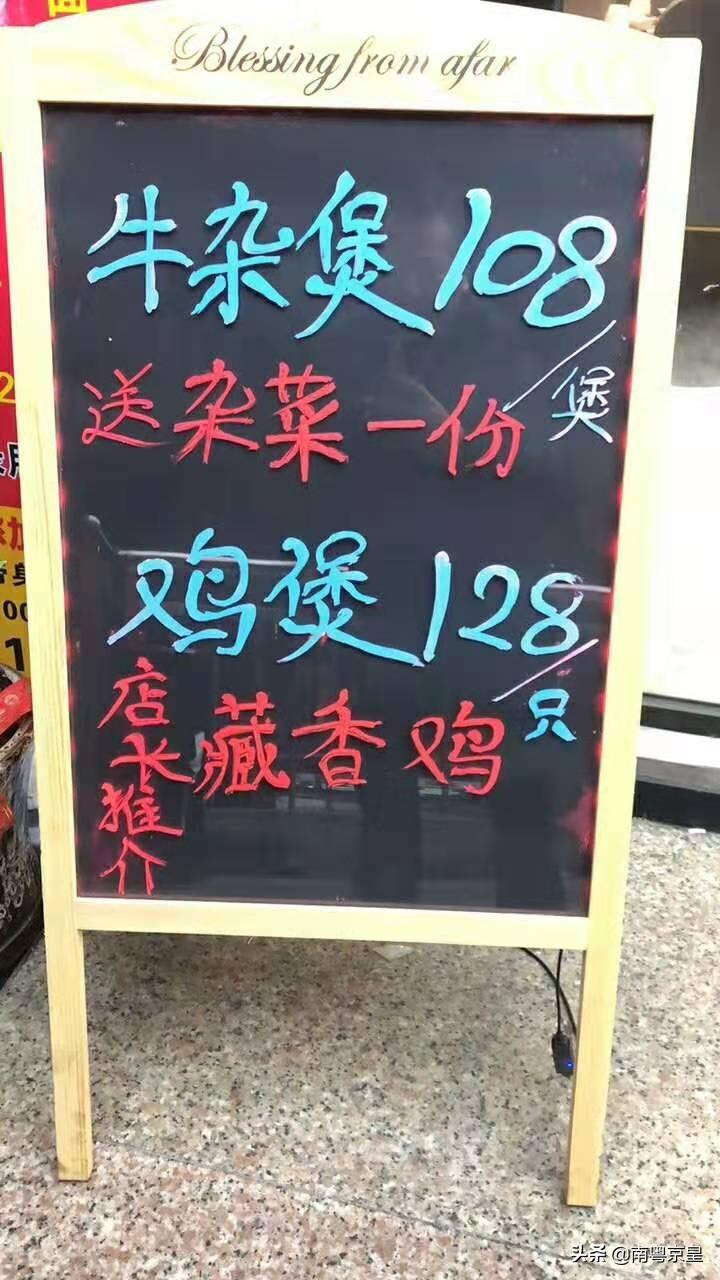 Blessing from afar
牛杂煲108/煲
送杂菜一份
鸡煲128/只
店长推介
藏香鸡
头条 @南粤京皇